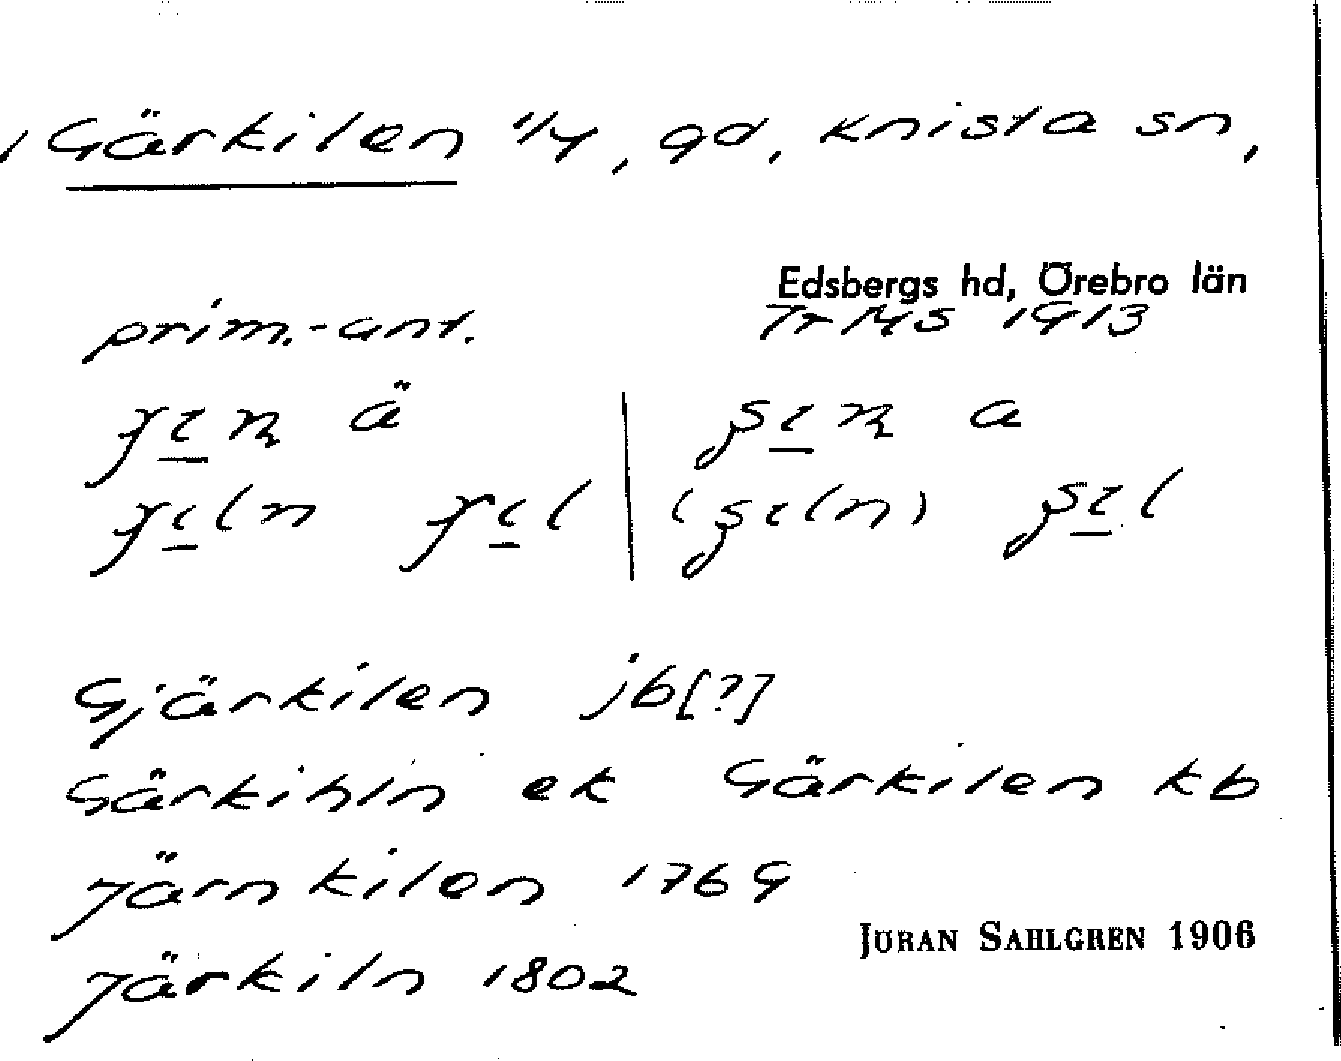 Gärkilen 1/4, gd, Knista sn,
Edsbergs hd, Örebro län
prim.-ant. Tr MS 1913
Gjärkilen jb[?]
Gärkihln ek Gärkilen kb
Järnkilen 1769
Järkiln 1802
JÖRAN SAHLGREN 1906